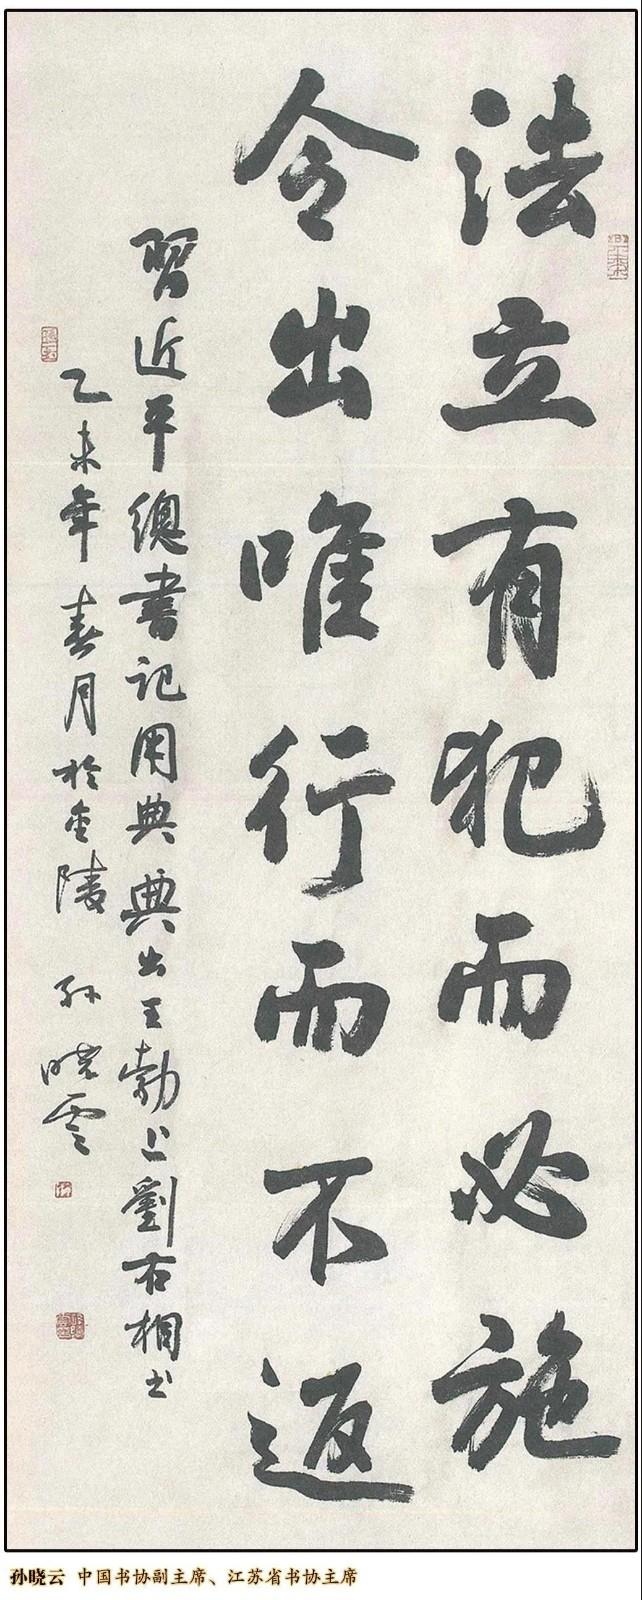 法立有犯而必施
令出唯行而不返
習近平總書記用典典出王勃上劉右相书
乙未年春月於金陵 孙晓雲
孙晓云 中国书协副主席、江苏省书协主席